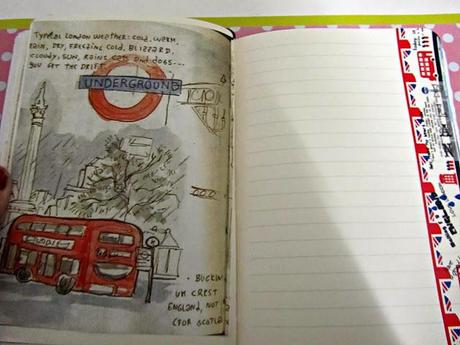 Typical London weather: cold, warm,
rain, dry, freezing cold, blizzard,
cloudy, sun, rains cats and dogs...
you get the drift.
UNDERGROUND
• BUCKIN
UM CREST
ENGLAND, NOT
(FOR SCOTLA